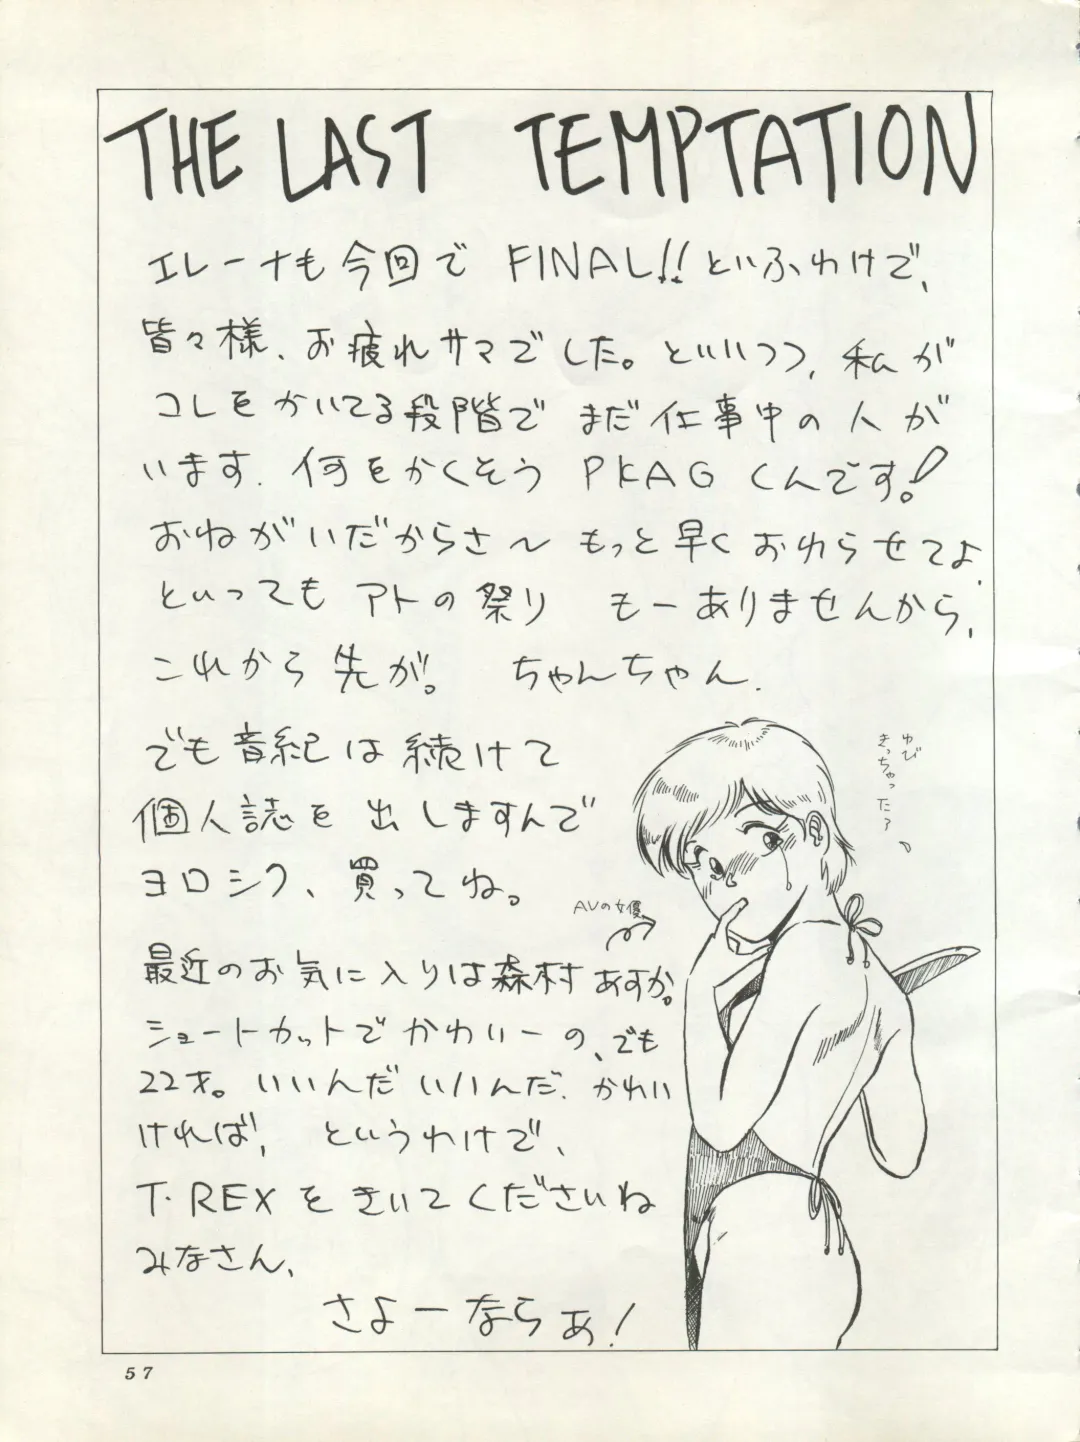 THE LAST TEMPTATION
エレーナも今回で FINAL!! といふわけで、
皆々様、お疲れサマでした。といいつつ、私が
コレをかいてる段階で まだ仕事中の人が
います。何をかくそう PKAGくんです!
おねがいだからさ〜 もっと早くおわらせてよ、
といってもアトの祭り もーありませんから、
これから先が。 ちゃんちゃん.
でも音紀は続けて
個人誌を出しますんで
ヨロシク、買ってね。
最近のお気に入りは森村あすか。
AVの女優
ショートカットでかわいーの、でも
22才。いいんだいいんだ. かわい
ければ、 というわけで、
T・REXをきいてくださいね
みなさん、
さよーならぁ!
ゆび
きっちゃったァ
57